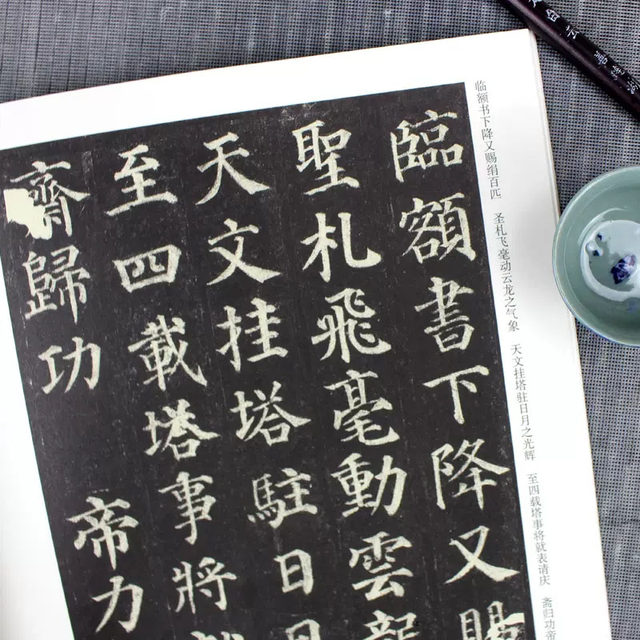 臨額書下降又賜
聖札飛毫動雲龍
天文挂塔駐日月
至四載塔事將
齊歸功帝力
临额书下降又赐绢百匹 圣札飞毫动云龙之气象 天文挂塔驻日月之光辉 至四载塔事将就表请庆 斋归功帝
白云